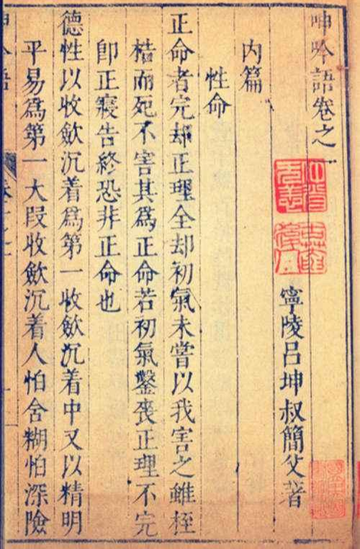 呻吟語卷之一
寧陵吕坤叔簡父著
内篇
性命
正命者完却正理全却初氣未嘗以我害之雖桎
梏而死不害其爲正命若初氣鑿喪正理不完
卽正寢告終恐非正命也
德性以收斂沉着爲第一收斂沉着中又以精明
平易爲第一大段收斂沉着人怕含糊怕深險